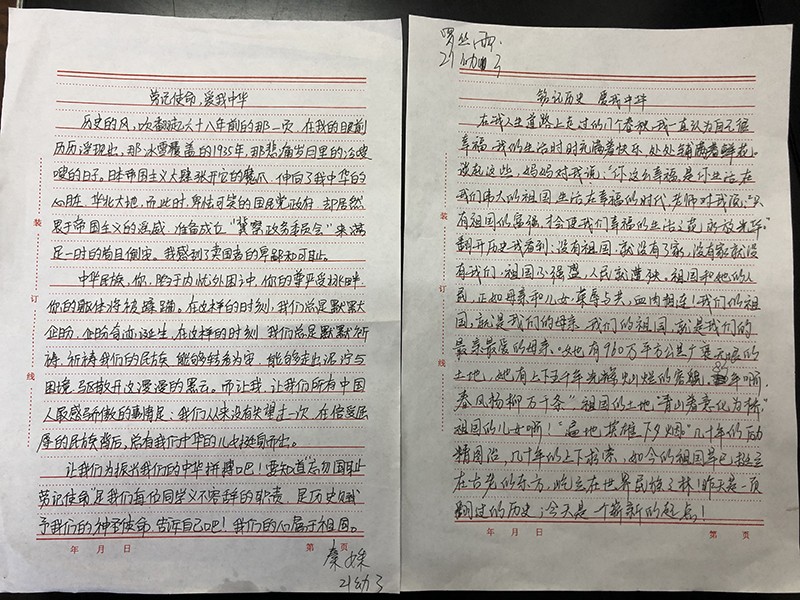 劳记使命,爱我中华
历史的风,吹翻起六十八年前的那一页,在我的眼前
历历浮现出,那冰雪覆盖的1935年,那悲痛岁月里的冷嗖
嗖的日子,日本帝国主义大肆张开它的魔爪,伸向了我中华的
心脏,华北大地,而此时,卑怯可笑的国民党政府,却居然
畏于帝国主义的淫威,准备成立"冀察政务委员会"来满
足一时的苟且倒安。我感到了卖国者的卑鄙和可耻。
中华民族,你,跨于内忧外困之中,你的尊严受挑衅
你的躯体将被蹂躏。在这样的时刻,我们总是默默
企盼,企盼奇迹诞生,在这样的时刻,我们总是默默祈
祷,祈祷我们的民族,能够转危为安,能够走出泥泞与
困境,驱散开这漫漫的黑云。而让我,让我们所有中国
人最感与骄傲的事情是:我们从来没有失望过一次,在倍受屈
辱的民族背后,总有我们中华的儿女挺身而出。
让我们为振兴我们的中华拼搏吧!要知道"勿忘国耻
劳记使命"是我们每位同学义不容辞的职责,是历史赋
予我们的神圣使命,告诉自己吧!我们的心属于祖国。
年 月 日 第 页
秦姝
21幼3
装
订
线
罗丝雨
21幼3
铭记历史 爱我中华
在我人生道路上走过的几个春秋,我一直认为自己很
幸福,我的生活时时充满着快乐,处处铺满着鲜花。
谈起这些,妈妈对我说:"你这么幸福是你生活在
我们伟大的祖国,生活在幸福的时代,老师对我说:"只
有祖国的富强,才会使我们幸福的生活之花,永放光华。"
翻开历史我看到:没有祖国,就没有了家,没有家就没
有我们,祖国不强盛,人民就遭殃。祖国和她的人
民,正如母亲和儿女,荣辱与共,血肉相连!我们的祖
国,就是我们的母亲,我们的祖国,就是我们的
最亲最爱的母亲。她有960万平方公里广袤无垠的
土地,她有上下五千年光辉灿烂的
春风杨柳万千条"祖国的土地"青山着意化为桥"
祖国的儿女啊!"遍地英雄下夕烟。"几十年的励
精图治,几十年的上下求索,如今的祖国早已挺立
在古老的东方,屹立在世界民族之林!昨天是一页
翻过的历史;今天是一个崭新的起点!
年 月 日 第 页
装
订
线